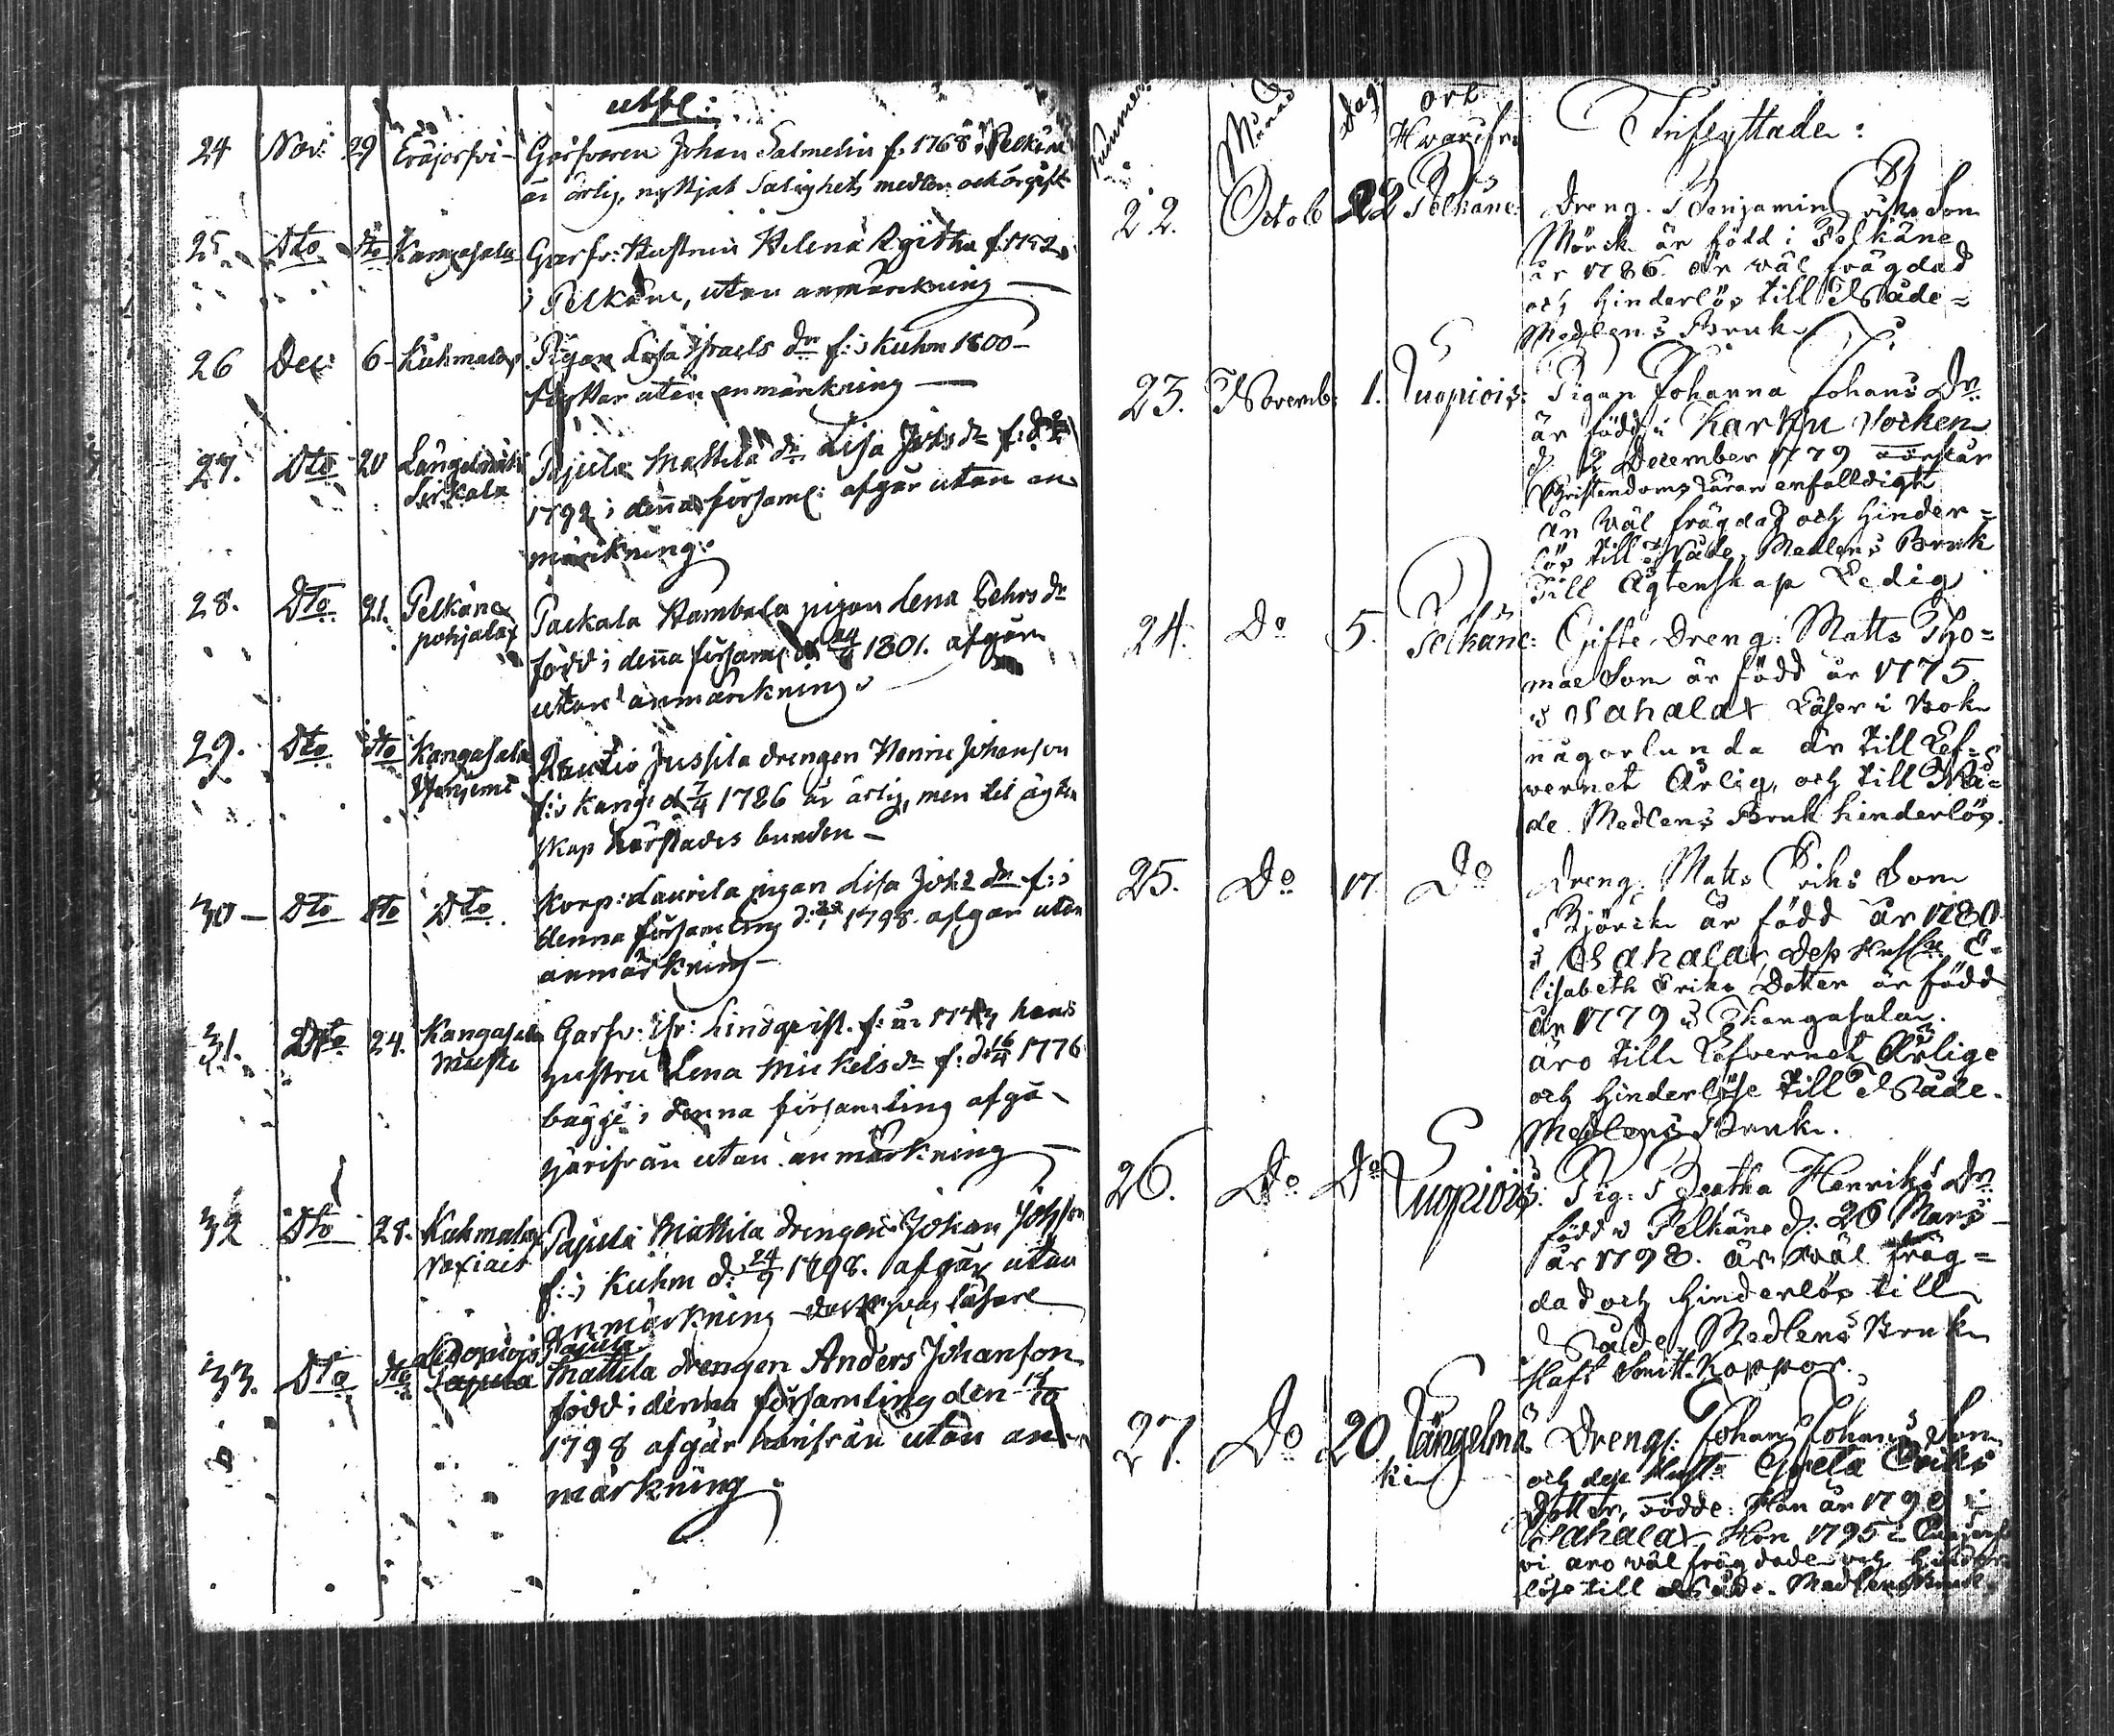 utfl:
24 Nov: 29 Eräjerfvi - Garfvaren Johan Salmelin f. 1768 i Pelkäne
är ärlig, nyttjat Salighets medlen och ogift
25. Dto Dto Kangasala Garfv: Hustrun Helena f. 1752
i Pelkäne, utan anmärkning —
26 Dec: 6 - Kuhmalax Pigan Lisa Israels dr f: i Kuhm 1800 -
flyttar utan anmärkning —
27. Dto 20 Längelmäki Pajula Mattila dr Lisa Johs dr f: d.
1792 i denna församl: afgår utan an
märkning.
28. Dto 21. Pelkäne Packala Hambala pigan Lena Pehrs dr
pohjalax född i denna församl d. 1801. afgår
utan anmärkning.
29. Dto Dto Kangasala Rautio Jussila drengen Henric Johanson
f: i Kang: d 7/4 1786 är ärlig, men til ägten
skap härstädes bunden -
30 - Dto Dto Dto Korp: Laurila pigan Lisa Joh: dr f: i
denna församling d: 1798. afgår utan
anmärkning -
31. Dto 24. Kangasala Garfv: Lindqvist. f: år hans
hustru Lena Mickels dr f: d 16/4 1776
bägge i denna församling afgå
härifrån utan anmärkning —
32 Dto 28. Kuhmalax Pajula Mattila drengen Johan Johsson
f: i Kuhm d: 24/9 1798. afgår utan
anmärkning - läsare
33. Dto Dto Pajula
Mattila drengen Anders Johanson
född i denna församling den
1798 afgår härifrån utan an
märkning.
Nummer Månad Dag ort Hvarifrå Inflyttade:
22. Octob 22 Pelkäne: Dreng. Benjamin Erichs Son
Mörck är född i Pelkäne
år 1786. är wäl frägdad
och hinderlös till Nåde =
Medlens Bruk.
23. Novemb: 1. Luopiois: Pigan Johanna Johans Dr.
är född i Karkku Socken
d. 2 December 1779 förstår
Christendoms läran enfalldigt
är wäl frägdad och hinder =
lös till Nåde Medlens Bruk
Till Ägtenskap Ledig
24. Do 5. Pelkäne: Gifte Dreng: Matts Tho =
mae Son är född år 1775
i Sahalax Läser i Bok
någorlunda är till Lef =
vernet Ärlig, och till Nå =
de Medlens Bruk hinderlös.
25. Do 17. Do Dreng. Matts Erichs Son
Björck är född år 1780
i Sahalax, dess Hustru E =
lisabeth Eriks Dotter är född
år 1779 i Kangasala.
äro till Lefvernet Ärlige
och hinderlöse till Nåde.
Medlens Bruk.
26. Do Do Luopiois: Pig: Beatha Henriks Dr
född i Pelkäne d. 26 Mars
år 1798. är wäl fräg =
dad och hinderlös till
Nåde Medlens Bruk
Haft Smitt-Koppor.
27. Do 20 Längelmä Dreng: Johan Johans Son
ki och dess Hustr Greta Eriks
Dotter, födde: Han år i
Sahalax, Hon 1795 i
äro wäl frägdade och hinder
löse till Nåde. Medlens Bruk.